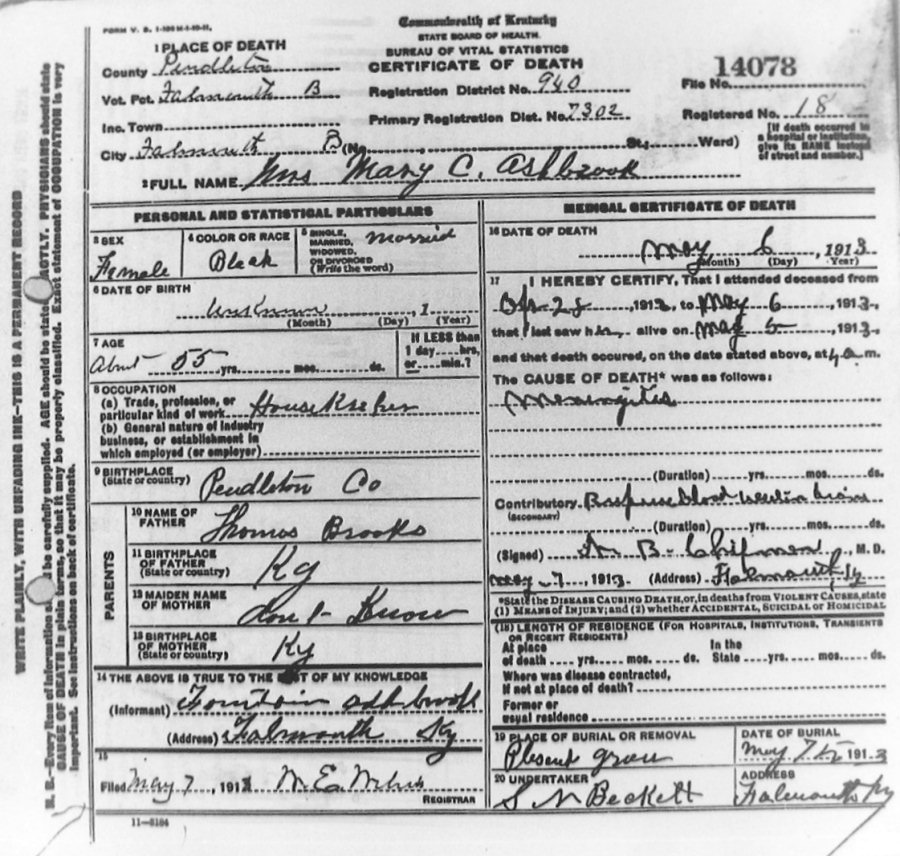 FORM V. S. 1-
Commonwealth of Kentucky
STATE BOARD OF HEALTH.
BUREAU OF VITAL STATISTICS
CERTIFICATE OF DEATH
1 PLACE OF DEATH
County Pendleton
Vot. Pct. Falmouth B
Inc. Town
City Falmouth B (No. , St.; Ward)
Registration District No. 940
Primary Registration Dist. No. 7302
File No. 14073
Registered No. 18
[If death occurred in
a hospital or institution,
give its NAME instead
of street and number.]
2 FULL NAME Mrs Mary C. Ashbrook
PERSONAL AND STATISTICAL PARTICULARS
3 SEX
Female
4 COLOR OR RACE
Black
5 SINGLE,
MARRIED,
WIDOWED,
OR DIVORCED
(Write the word)
Married
6 DATE OF BIRTH
unknown , 1
(Month) (Day) (Year)
7 AGE
About 55 yrs. mos. ds.
If LESS than
1 day....hrs,
or....min.?
8 OCCUPATION
(a) Trade, profession, or
particular kind of work House Keeper
(b) General nature of industry
business, or establishment in
which employed (or employer)
9 BIRTHPLACE
(State or country) Pendleton Co
PARENTS
10 NAME OF
FATHER Thomas Brooks
11 BIRTHPLACE
OF FATHER
(State or country) Ky
12 MAIDEN NAME
OF MOTHER Don't Know
13 BIRTHPLACE
OF MOTHER
(State or country) Ky
14 THE ABOVE IS TRUE TO THE BEST OF MY KNOWLEDGE
(Informant) Fountain
(Address) Falmouth Ky
15
Filed May 7, 1913 M. E.
REGISTRAR
11-5184
MEDICAL CERTIFICATE OF DEATH
16 DATE OF DEATH
May 6, 1913
(Month) (Day) Year)
17 I HEREBY CERTIFY, That I attended deceased from
Apr 28, 1913, to May 6, 1913,
that I last saw her alive on May 5, 1913,
and that death occured, on the date stated above, at 4 a m.
The CAUSE OF DEATH* was as follows:
Meningitis
(Duration) yrs. mos. ds.
Contributory blood brain
(SECONDARY)
(Duration) yrs. mos. ds.
(Signed) B. Chipman, M. D.
May 7, 1913 (Address) Falmouth Ky
*State the DISEASE CAUSING DEATH, or, in deaths from VIOLENT CAUSES, state
(1) MEANS OF INJURY; and (2) whether ACCIDENTAL, SUICIDAL OR HOMICIDAL
(18) LENGTH OF RESIDENCE (FOR HOSPITALS, INSTITUTIONS, TRANSIENTS
OR RECENT RESIDENTS)
At place of death yrs. mos. ds. In the State yrs. mos. ds.
Where was disease contracted,
If not at place of death?
Former or
usual residence
19 PLACE OF BURIAL OR REMOVAL
Plesent grove
DATE OF BURIAL
May 7th 1913
20 UNDERTAKER
S N Beckett
ADDRESS
Falmouth Ky
WRITE PLAINLY, WITH UNFADING INK—THIS IS A PERMANENT RECORD
N. B.—Every item of information should be carefully supplied. AGE should be stated EXACTLY. PHYSICIANS should state
CAUSE OF DEATH in plain terms, so that it may be properly classified. Exact statement of OCCUPATION is very
important. See instructions on back of certificate.